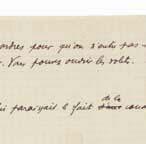 ordres pour qu'on n'entre pas
. Vous pouvez ouvrir les volets.
lui paraissait le fait de la